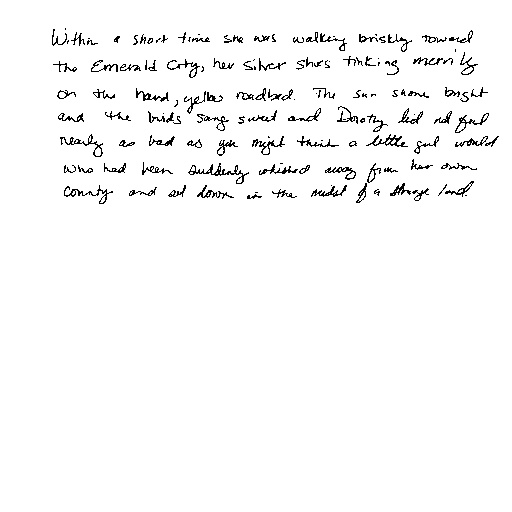 Within a short time she was walking briskly toward
the Emerald City, her Silver Shoes tinking merrily
on the hard, yellow roadbed. The sun shone bright
and the birds sang sweet and Dorothy did not feel
nearly as bad as you might think a little girl would
who had been suddenly whisked away from her own
country and set down in the midst of a strange land.